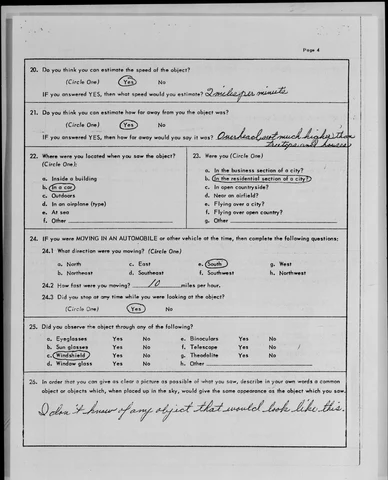 Page 4
20. Do you think you can estimate the speed of the object?
(Circle One) Yes No
IF you answered YES, then what speed would you estimate? 2 miles per minute
21. Do you think you can estimate how far away from you the object was?
(Circle One) Yes No
IF you answered YES, then how far away would you say it was? Overhead not much higher than
treetops and houses
22. Where were you located when you saw the object?
(Circle One):
a. Inside a building
b. In a car
c. Outdoors
d. In an airplane (type)
e. At sea
f. Other
23. Were you (Circle One)
a. In the business section of a city?
b. In the residential section of a city?
c. In open countryside?
d. Near an airfield?
e. Flying over a city?
f. Flying over open country?
g. Other
24. IF you were MOVING IN AN AUTOMOBILE or other vehicle at the time, then complete the following questions:
24.1 What direction were you moving? (Circle One)
a. North c. East e. South g. West
b. Northeast d. Southeast f. Southwest h. Northwest
24.2 How fast were you moving? 10 miles per hour.
24.3 Did you stop at any time while you were looking at the object?
(Circle One) Yes No
25. Did you observe the object through any of the following?
a. Eyeglasses Yes No e. Binoculars Yes No
b. Sun glasses Yes No f. Telescope Yes No
c. Windshield Yes No g. Theodolite Yes No
d. Window glass Yes No h. Other
26. In order that you can give as clear a picture as possible of what you saw, describe in your own words a common
object or objects which, when placed up in the sky, would give the same appearance as the object which you saw.
I don't know of any object that would look like this.